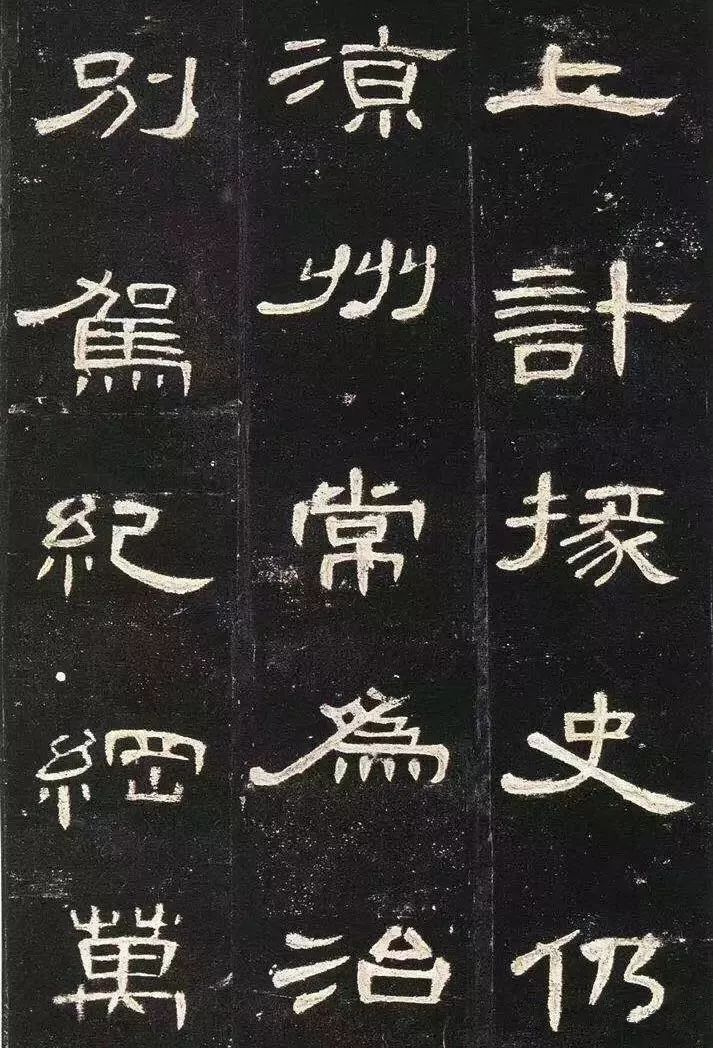 上計掾史仍
凉州常為治
別駕紀綱萬